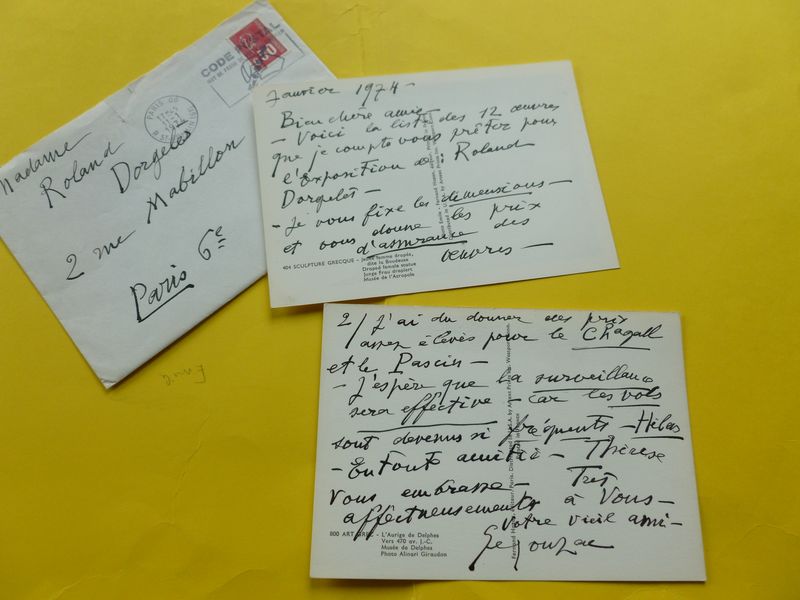 CODE POSTAL
PARIS 06
1974
Madame
Roland
Dorgelès
2 rue Mabillon
Paris 6e
Janvier 1974 -
Bien chère amie
- Voici la liste des 12 œuvres
que je compte vous prêter pour
l'Exposition de Roland
Dorgelès -
- Je vous fixe les dimensions -
et vous donne les prix
d'assurance des
œuvres -
404 SCULPTURE GRECQUE - Jeune femme drapée,
dite la Boudeuse
Draped female statue
Junge Frau drapiert
Musée de l'Acropole
2/ J'ai du donner des prix
assez élevés pour le Chagall
et le Pascin -
- J'espère que la surveillance
sera effective - car les vols
sont devenus si fréquents - Hélas
- En toute amitié - Thérèse
vous embrasse - Très
affectueusement à Vous -
Votre vieil ami -
800 ART GREC - L'Aurige de Delphes
Vers 470 av. J.-C.
Musée de Delphes
Photo Alinari Giraudon